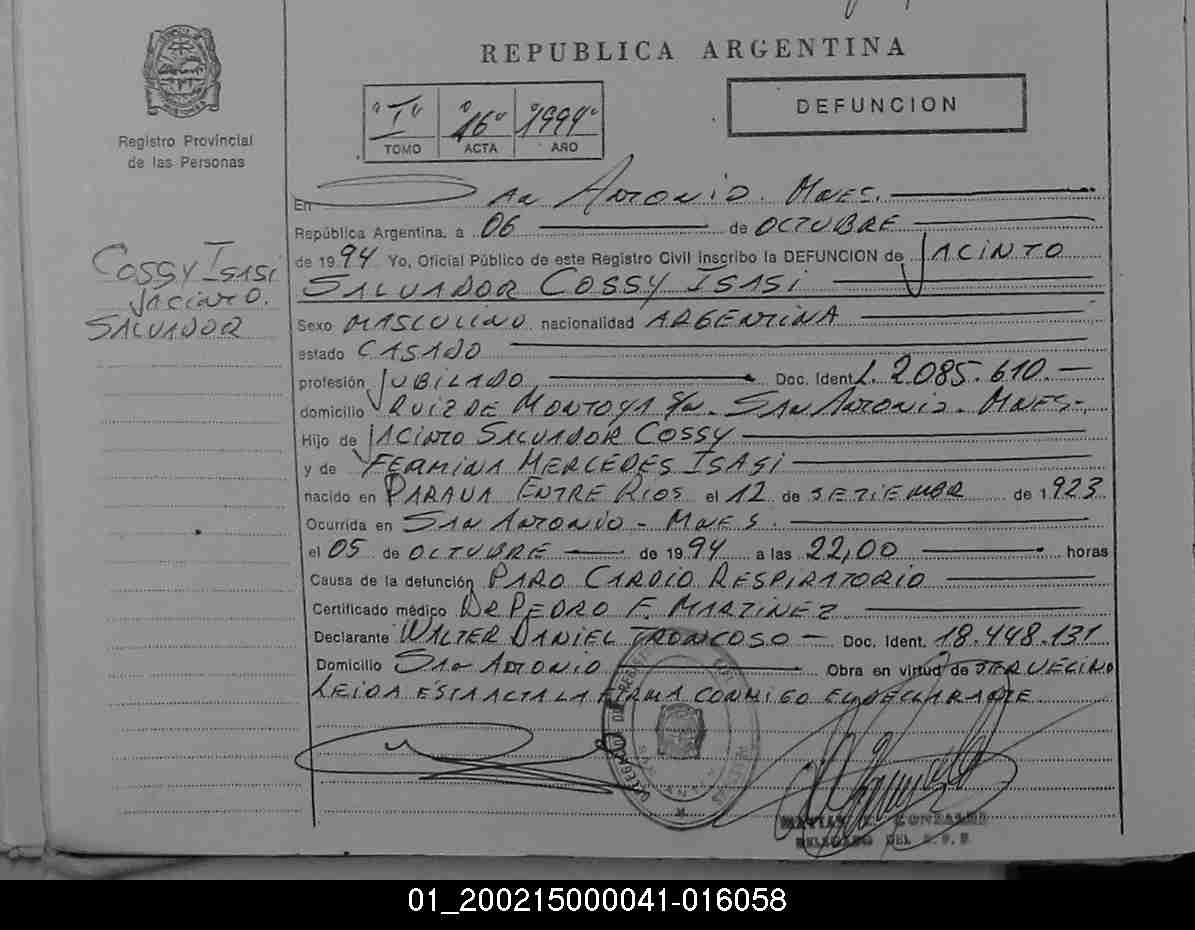 REPUBLICA ARGENTINA
"I" "16" "1994"
TOMO ACTA AÑO
DEFUNCION
Registro Provincial
de las Personas
COSSY ISASI
JACINTO.
SALVADOR
En SAN ANTONIO. MNES.
República Argentina, a 06 de OCTUBRE
de 1994 Yo, Oficial Público de este Registro Civil inscribo la DEFUNCION de JACINTO
SALVADOR COSSY ISASI
Sexo MASCULINO nacionalidad ARGENTINA
estado CASADO
profesión JUBILADO, Doc. Ident. L. 2.085.610.-
domicilio RUIZ DE MONTOYA S/N. SAN ANTONIO. MNES.
Hijo de JACINTO SALVADOR COSSY
y de FERMINA MERCEDES ISASI
nacido en PARANA ENTRE RIOS el 12 de SETIEMBR de 1.923
Ocurrida en SAN ANTONIO - MNES.
el 05 de OCTUBRE de 1994 a las 22,00 horas
Causa de la defunción PARO CARDIO RESPIRATORIO
Certificado médico DR PEDRO F. MARTINEZ
Declarante WALTER DANIEL TRONCOSO - Doc. Ident. 18.448.131
Domicilio SAN ANTONIO Obra en virtud de SER VECINO
LEIDA ESTA ACTA LA FIRMA CONMIGO EL DECLARANTE.
DELEGADO DEL
01_200215000041-016058